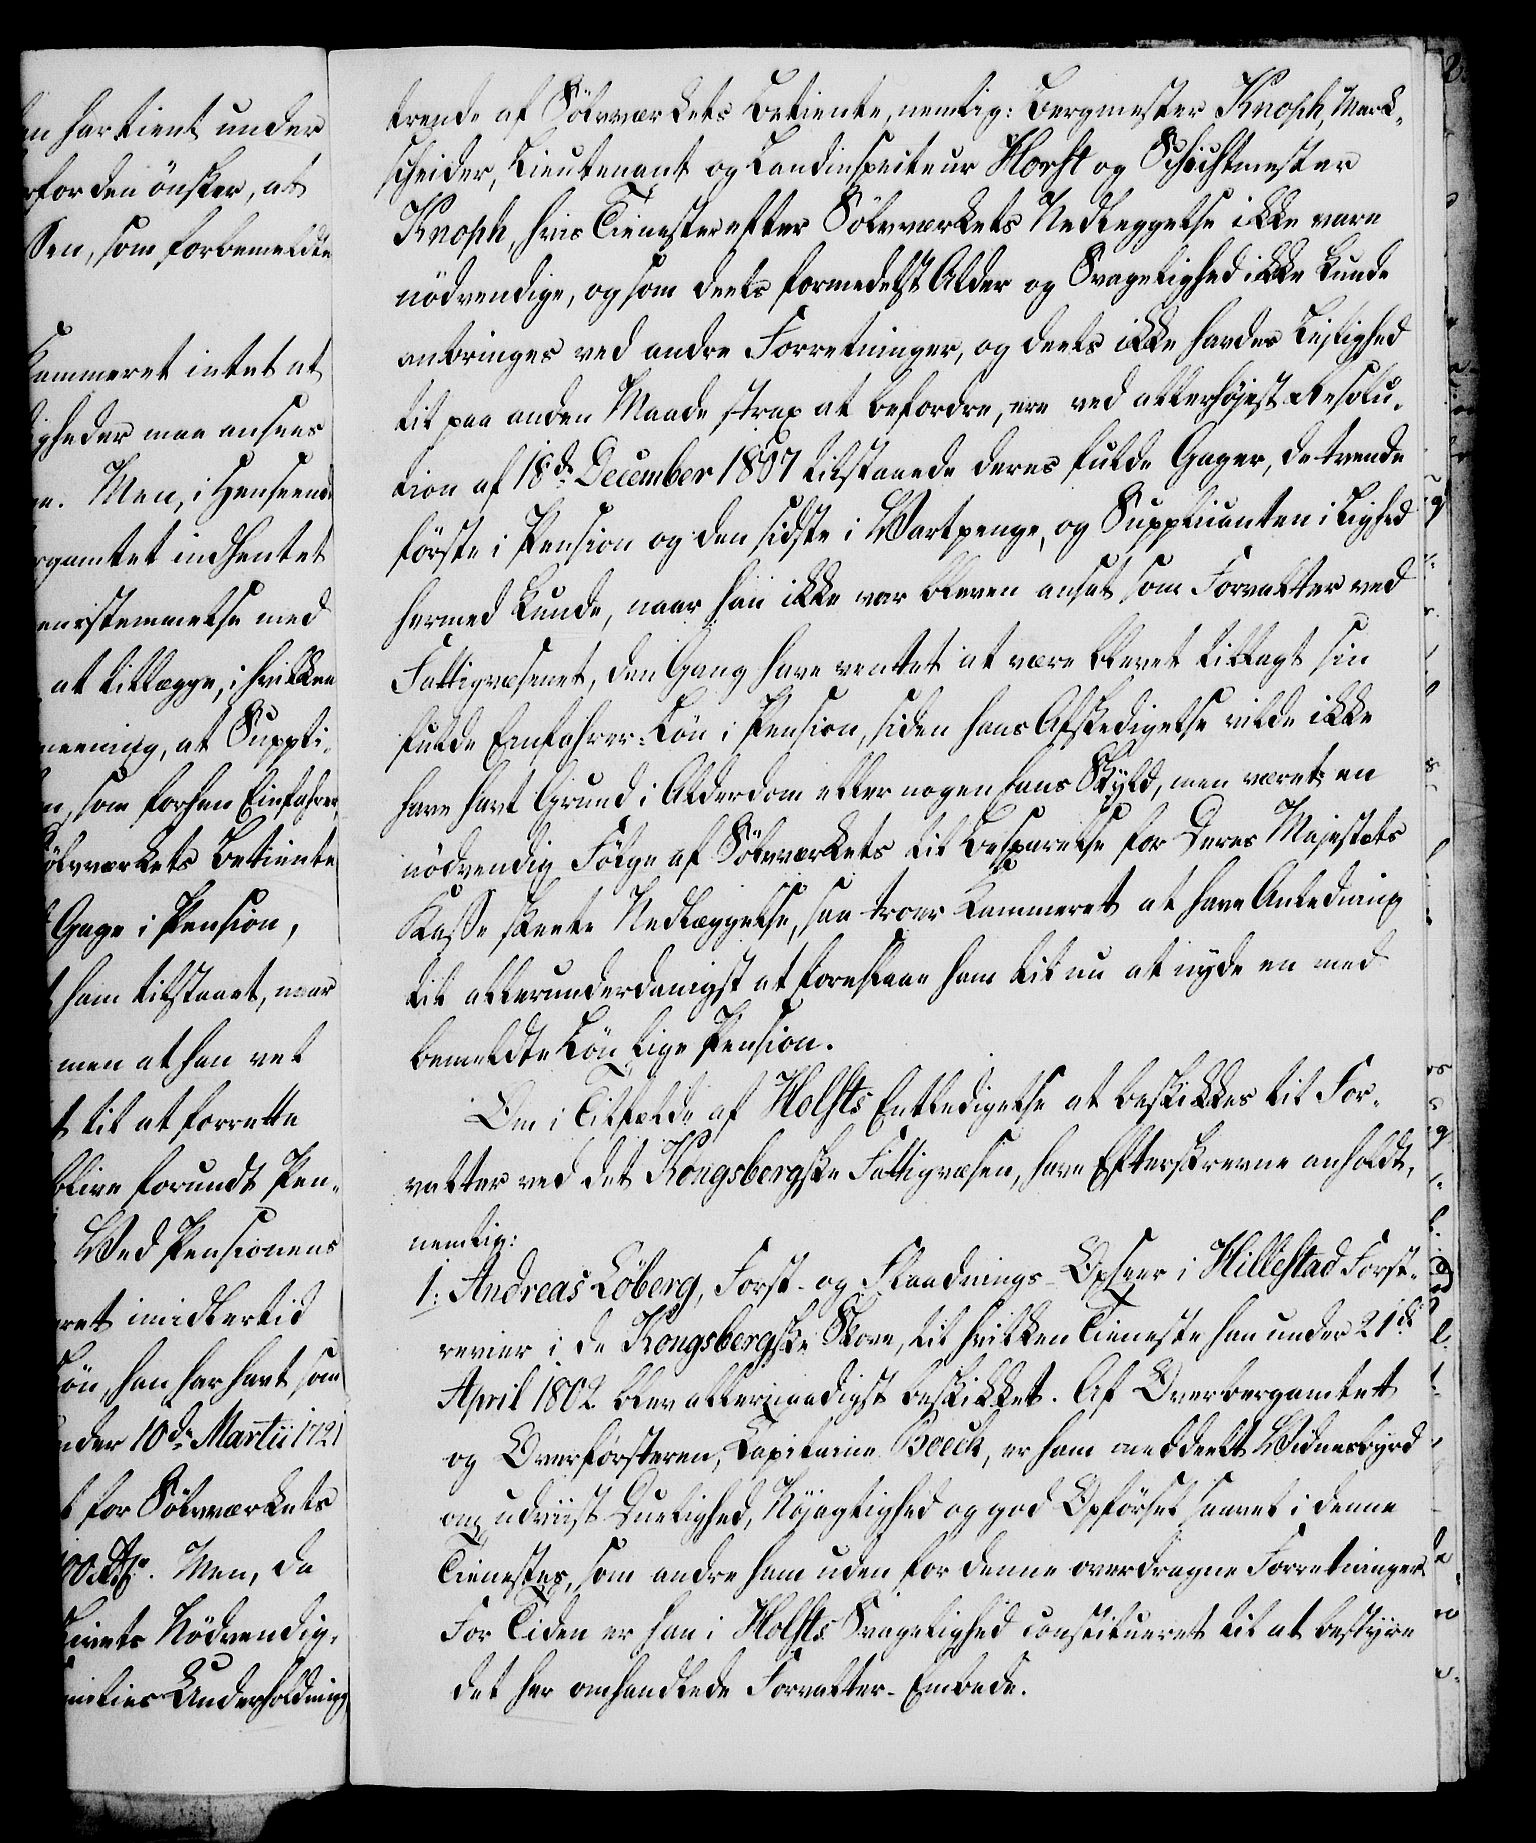 en har tient under
for den önsker, at
sen, som forbemeldte
Kammeret intet at
igheder maa ansees
Men, i Henseende
rgamtet indhentet
eensstemmelse med
at tillægge, i hvilken
meening, at Suppli-
som forhen Einfahrer
Sölvværkets Betiente
Gage i Pension,
ham tilstaaet, naar
men at han ved
til at forrette
blive forundt Pen-
Ved Pensionens
ret imidlertid
Lön, han har havt som
under 10de Martii 1721
for Sölvværkets
Men, da
Livets Nödvendig-
milies Underholdning
trende af Sölvværkets Betiente, nemlig: Bergmester Knoph, Mark-
scheider, Lieutenant og Landinspecteur Horst og Schichtmester
Knoph, hvis Tienester efter Sölvværkets Nedleggelse ikke vare
nödvendige, og som deels formedelst Alder og Svagelighed ikke kunde
anbringes ved andre Forretninger, og deels ikke havdes Leilighed
til paa anden Maade strax at befordre, ere ved allerhöjest Resolu-
tion af 18de December 1807 tilstaaede deres fulde Gager, de tvende
förste i Pension og den sidste i Vartpenge, og Supplicanten i Lighed
hermed kunde, naar han ikke var bleven ansat som Forvalter ved
Fattigvæsenet, den Gang have ventet at være blevet tillagt sin
fulde Einfahrer-Lön i Pension, siden hans Afskedigelse vilde ikke
have havt Grund i Alderdom eller nogen hans Skyld, men været en
nödvendig Fölge af Sölvværkets til Besparelse for Deres Majestæts
Kasse skeete Nedlæggelse, saa troer Kammeret at have Anledning
til allerunderdanigst at foreslaae ham til nu at nyde en med
bemeldte Lön lige Pension.
Om i Tilfælde af Holsts Entledigelse at beskikkes til For-
valter ved det Kongsbergske Fattigvæsen, have Efterskrevne anholdt,
nemlig:
1. Andreas Löberg, Forst- og Flaadnings-Opseer i Hillestad Forst-
revier i de Kongsbergske Skove, til hvilken Tieneste han under 21de
April 1802 blev allernaadigst beskikket. Af Overbergamtet
og Overförsteren, Capitaine Boeck, er ham meddeelt Vidnesbyrd
om udviist Duelighed, Nöjagtighed og god Opförsel saavel i denne
Tieneste, som andre ham uden for denne overdragne Forretninger.
For Tiden er han i Holsts Svagelighed constitueret til at bestyre
det her omhandlede Forvalter-Embede.